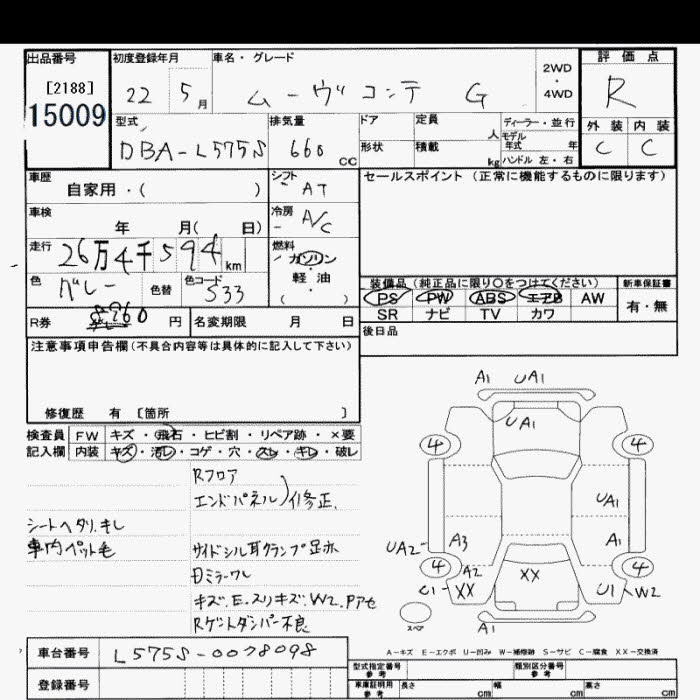 出品番号 初度登録年月 車名・グレード 2WD・4WD 評価点
[2188]
15009
22 5月 ムーヴコンテ G R
型式 排気量 ドア 定員 人 ディーラー・並行
モデル年式 年 外装 内装
DBA-L575S 660 CC 形状 積載 kg ハンドル 左・右 C C
車歴 自家用・( ) シフト AT セールスポイント(正常に機能するものに限ります)
車検 年 月( 日) 冷房 A/C
走行 26万4千594 km 燃料 ガソリン・軽油・( )
色 グレー 色替 色コード S33
装備品(純正品に限り○をつけてください) 新車保証書
PS PW ABS エアB AW 有・無
SR ナビ TV カワ
R券 8960 円 名変期限 月 日
後日品
注意事項申告欄(不具合内容等は具体的に記入して下さい)
修復歴 有 [箇所 ]
検査員記入欄 FW キズ・飛石・ヒビ割・リペア跡・×要
内装 キズ・汚レ・コゲ・穴・スレ・キレ・破レ
Rフロア
エンドパネル)イ修正、
シートヘタリ.キレ
車内ペット毛
サイドシル耳クランプ足赤
日ミラーワレ
キズ.E.スリキズ.W2.Pアセ
Rゲートダンパー不良
A1 UA1
UA1
4 4
UA1
A3 A1
UA2
4 A2 XX 4
U1 XX U1 W2
スペア
A1
A-キズ E-エクボ U-凹み W-補修跡 S-サビ C-腐食 XX-交換済
車台番号 L575S-0078098
登録番号
型式指定番号 参考 類別区分番号 参考
車庫証明用 参考 長さ cm 幅 cm 高さ cm